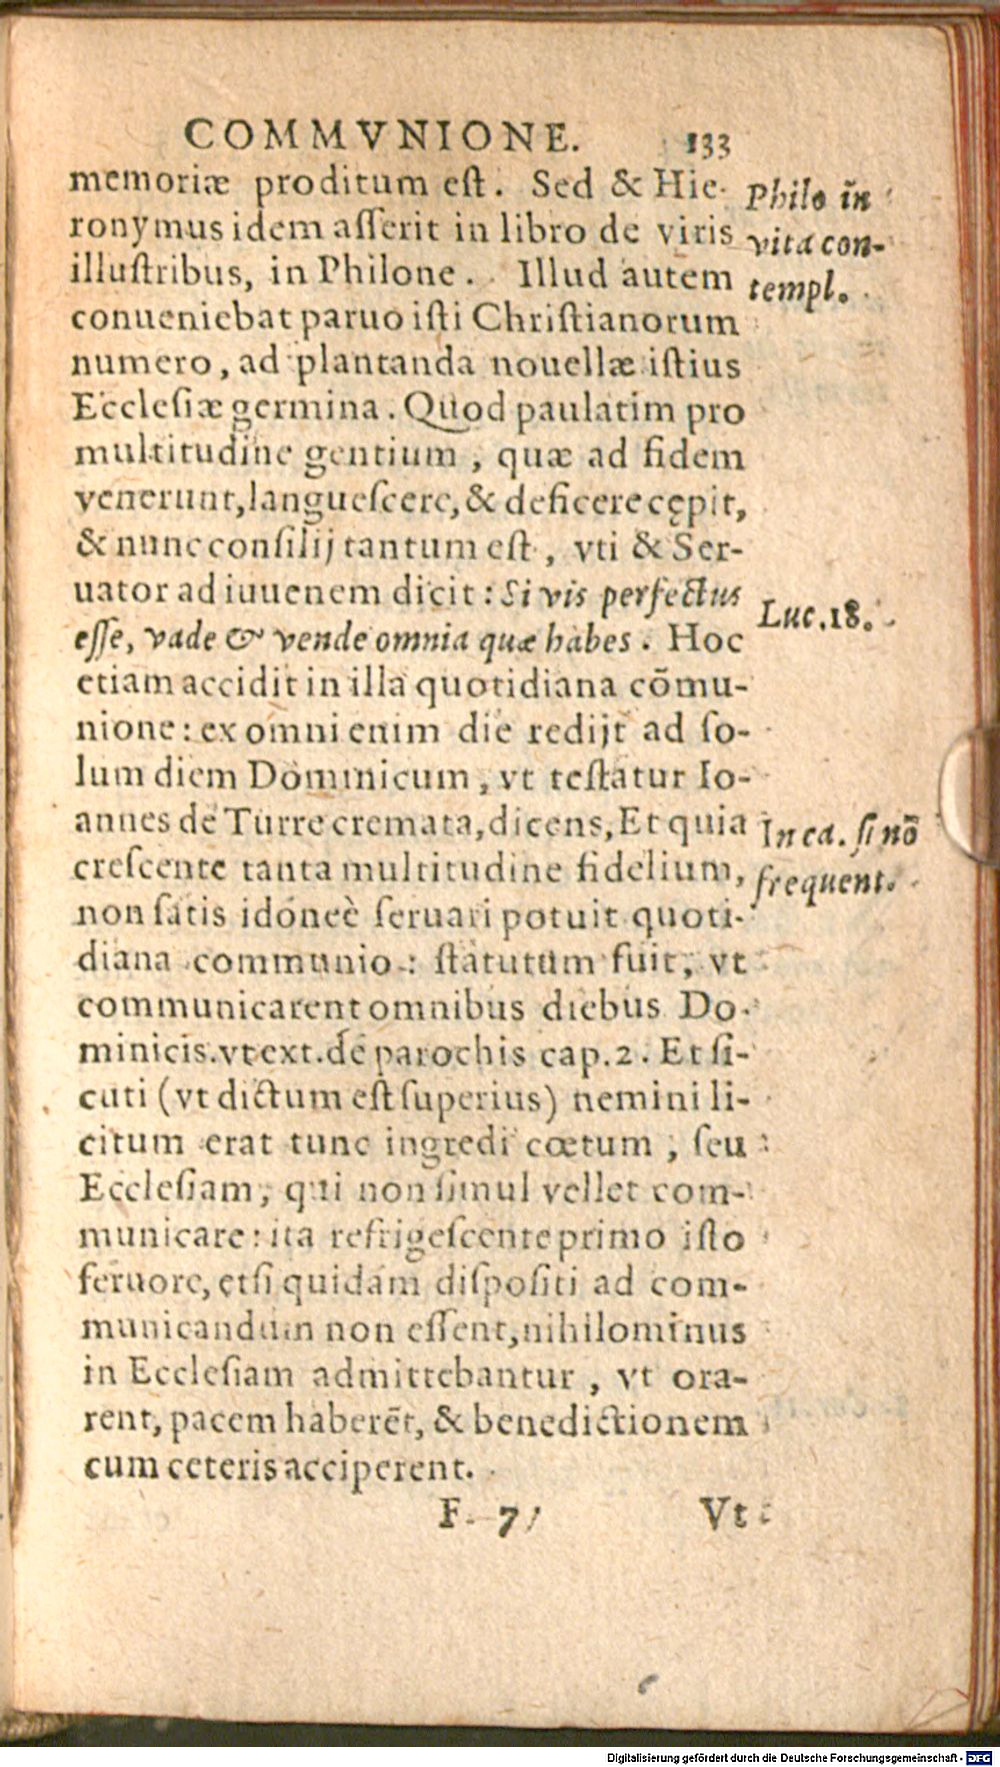 COMMVNIONE. 133
memoriæ proditum eſt. Sed & Hie-
ronymus idem aſſerit in libro de viris
illuſtribus, in Philone. Illud autem
Philo in̄
vita con-
templ.
conueniebat paruo iſti Chriſtianorum
numero, ad plantanda nouellæ iſtius
Eccleſiæ germina. Quod paulatim pro
multitudine gentium, quæ ad fidem
venerunt, langueſcere, & deficere cępit,
& nunc conſilij tantum eſt, vti & Ser-
uator ad iuuenem dicit: Si vis perfectus
eſſe, vade & vende omnia quæ habes. Hoc
Luc.18.
etiam accidit in illa quotidiana cōmu-
nione: ex omni enim die redijt ad ſo-
lum diem Dominicum, vt teſtatur Io-
annes de Turre cremata, dicens, Et quia
creſcente tanta multitudine fidelium,
In ca. ſi nō
frequent.
non ſatis idoneè ſeruari potuit quoti-
diana communio: ſtatutum fuit, vt
communicarent omnibus diebus Do-
minicis. vt ext. de parochis cap. 2. Et ſi-
cuti (vt dictum eſt ſuperius) nemini li-
citum erat tunc ingredi cœtum, ſeu
Eccleſiam, qui non ſimul vellet com-
municare: ita refrigeſcente primo iſto
feruore, etſi quidam diſpoſiti ad com-
municandum non eſſent, nihilominus
in Eccleſiam admittebantur, vt ora-
rent, pacem haberēt, & benedictionem
cum ceteris acciperent.
F 7 Vt
Digitalisierung gefördert durch die Deutsche Forschungsgemeinschaft - DFG